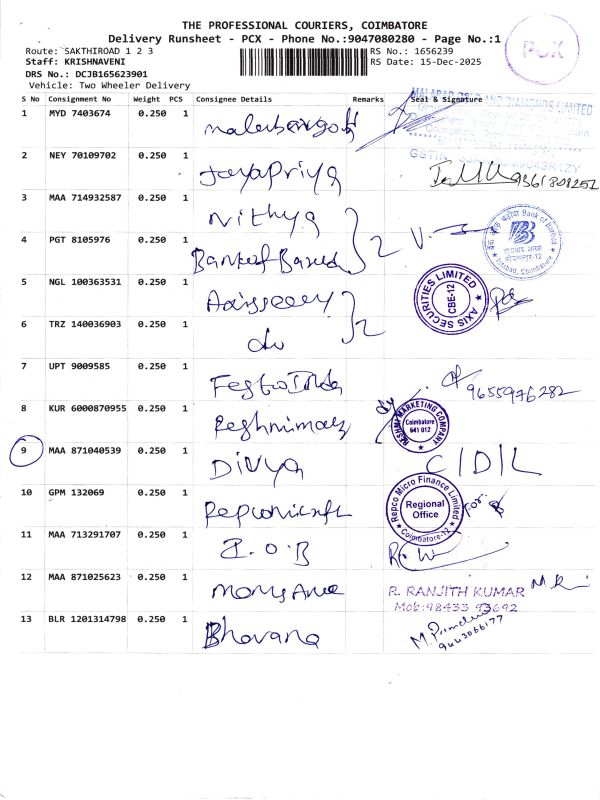 THE PROFESSIONAL COURIERS, COIMBATORE
Delivery Runsheet - PCX - Phone No.:9047080280 - Page No.:1
PCX
Route: SAKTHIROAD 1 2 3
RS No.: 1656239
Staff: KRISHNAVENI
RS Date: 15-Dec-2025
DRS No.: DCJB165623901
Vehicle: Two Wheeler Delivery
S No Consignment No Weight PCS Consignee Details Remarks Seal & Signature
1 MYD 7403674 0.250 1
MALABAR GOLD AND DIAMONDS LIMITED
2 NEY 70109702 0.250 1 Jayapriya
9361808252
3 MAA 714932587 0.250 1 Nithya
4 PGT 8105976 0.250 1 2
Bank of Baroda
Coimbatore-12
5 NGL 100363531 0.250 1
AXIS SECURITIES LIMITED
CBE-12
6 TRZ 140036903 0.250 1 do 2
7 UPT 9009585 0.250 1
9655976282
8 KUR 6000870955 0.250 1
RESHMI MARKETING COMPANY
Coimbatore
641 012
9 MAA 871040539 0.250 1 Divya C/D/L
10 GPM 132069 0.250 1
Repco Micro Finance Limited
Regional
Office
Coimbatore-12
For
11 MAA 713291707 0.250 1 I.O.B
12 MAA 871025623 0.250 1
R. RANJITH KUMAR
Mob:98433 93692
13 BLR 1201314798 0.250 1 Bhavana
9443066177